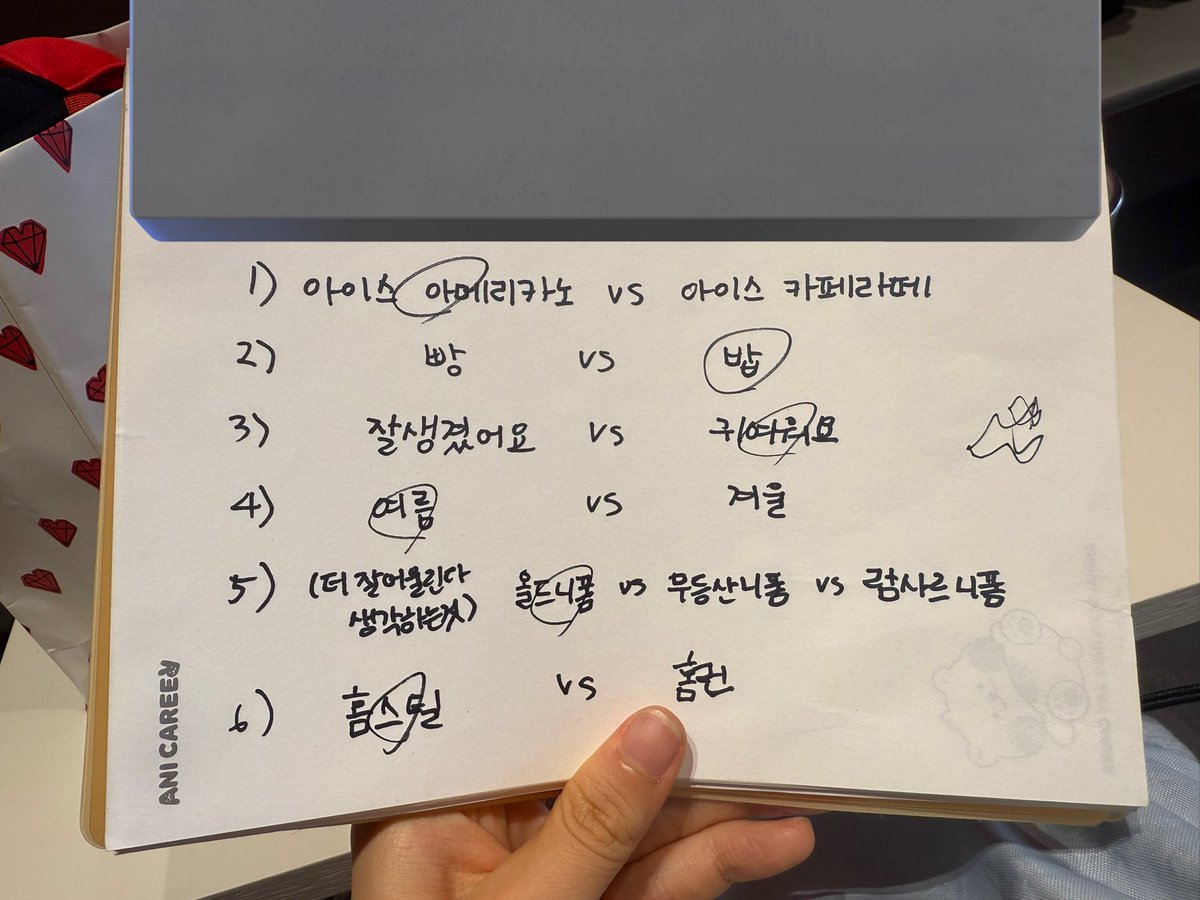 1) 아이스 아메리카노 vs 아이스 카페라떼
2) 빵 vs 밥
3) 잘생겼어요 vs 귀여워요
4) 여름 vs 겨울
5) (더 잘어울린다 생각하는것) 올드니폼 vs 무등산니폼 vs 람사르니폼
6) 홈스틸 vs 홈런
ANI CAREER